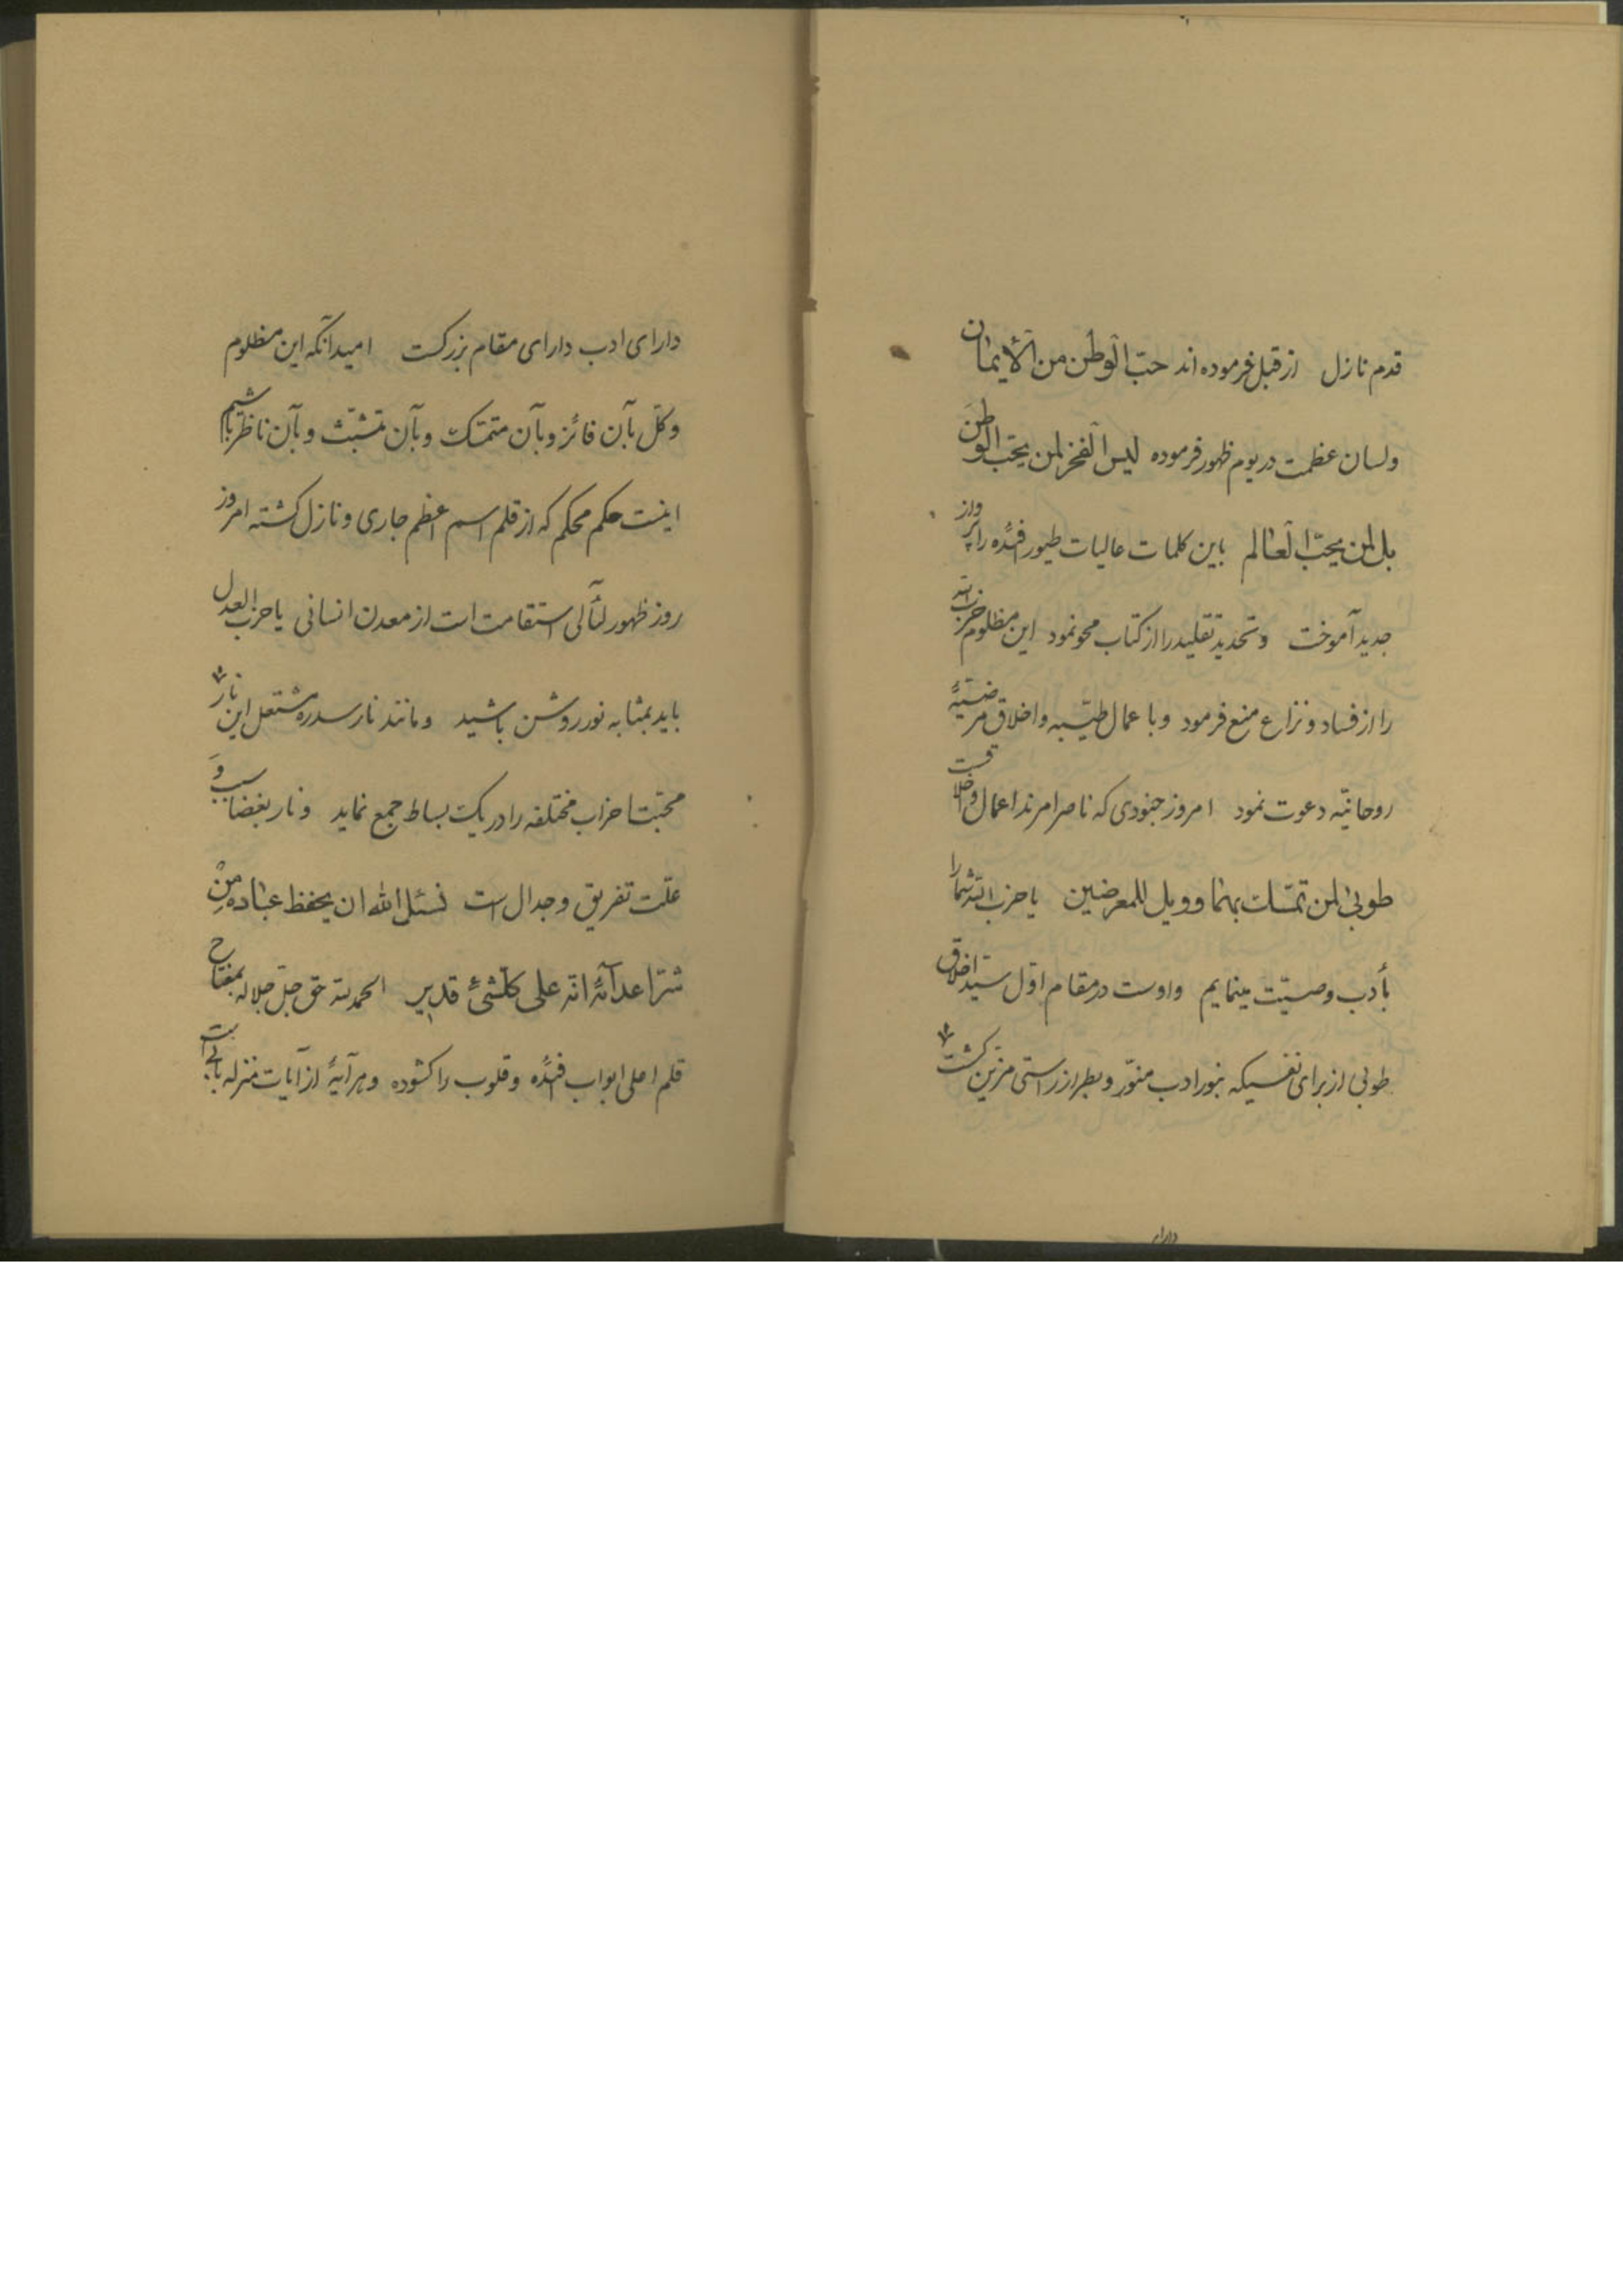 قدم نازل از قبل فرموده اند حبّ الوطن من الأیمان
ولسان عظمت در یوم ظهور فرموده لیس الفخر لمن یحبّ الوطن
بل لمن یحبّ العالم باین کلمات عالیات طیور افئده را پرواز
جدید آموخت و تحدید و تقلید را از کتاب محو نمود این مظلوم حزب الله
را از فساد و نزاع منع فرمود و باعمال طیّبه و اخلاق مرضیّهٔ
روحانیّه دعوت نمود امروز جنودی که ناصر امرند اعمال و اخلاقست
طوبی لمن تمسّک بهما و ویل للمعرضین یا حزب الله شما را
بأدب وصیّت مینمایم و اوست در مقام اوّل سیّد اخلاق
طوبی از برای نفسیکه بنور ادب منوّر و بطراز راستی مزیّن گشت
دارای
دارای ادب دارای مقام بزرگست امید آنکه این مظلوم
و کلّ بآن فائز و بآن متمسّک و بآن متشبّث و بآن ناظر باشیم
اینست حکم محکم که از قلم اسم اعظم جاری و نازل گشته امروز
روز ظهور لئآلی استقامت است از معدن انسانی یا حزب العدل
باید بمثابه نور روشن باشید و مانند نار سدره مشتعل این نار
محبّت احزاب مختلفه را در یک بساط جمع نماید و نار بغضا سبب و
علّت تفریق و جدال است نسئل الله ان یحفظ عباده من
شرّ اعدآئه انّه علی کلّشیءٍ قدیر الحمد لله حق جلّ جلاله بمفتاح
قلم اعلی ابواب افئده و قلوب را گشوده و هر آیهٔ از آیات منزله بابی است